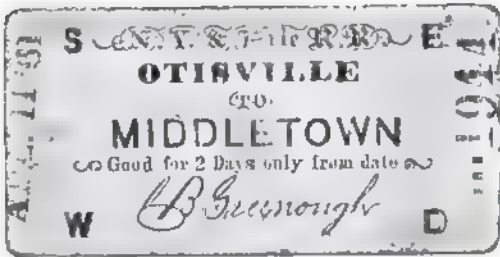 S N. Y. & Erie R. R. E
OTISVILLE
TO
MIDDLETOWN
Good for 2 Days only from date
Greenough
W D